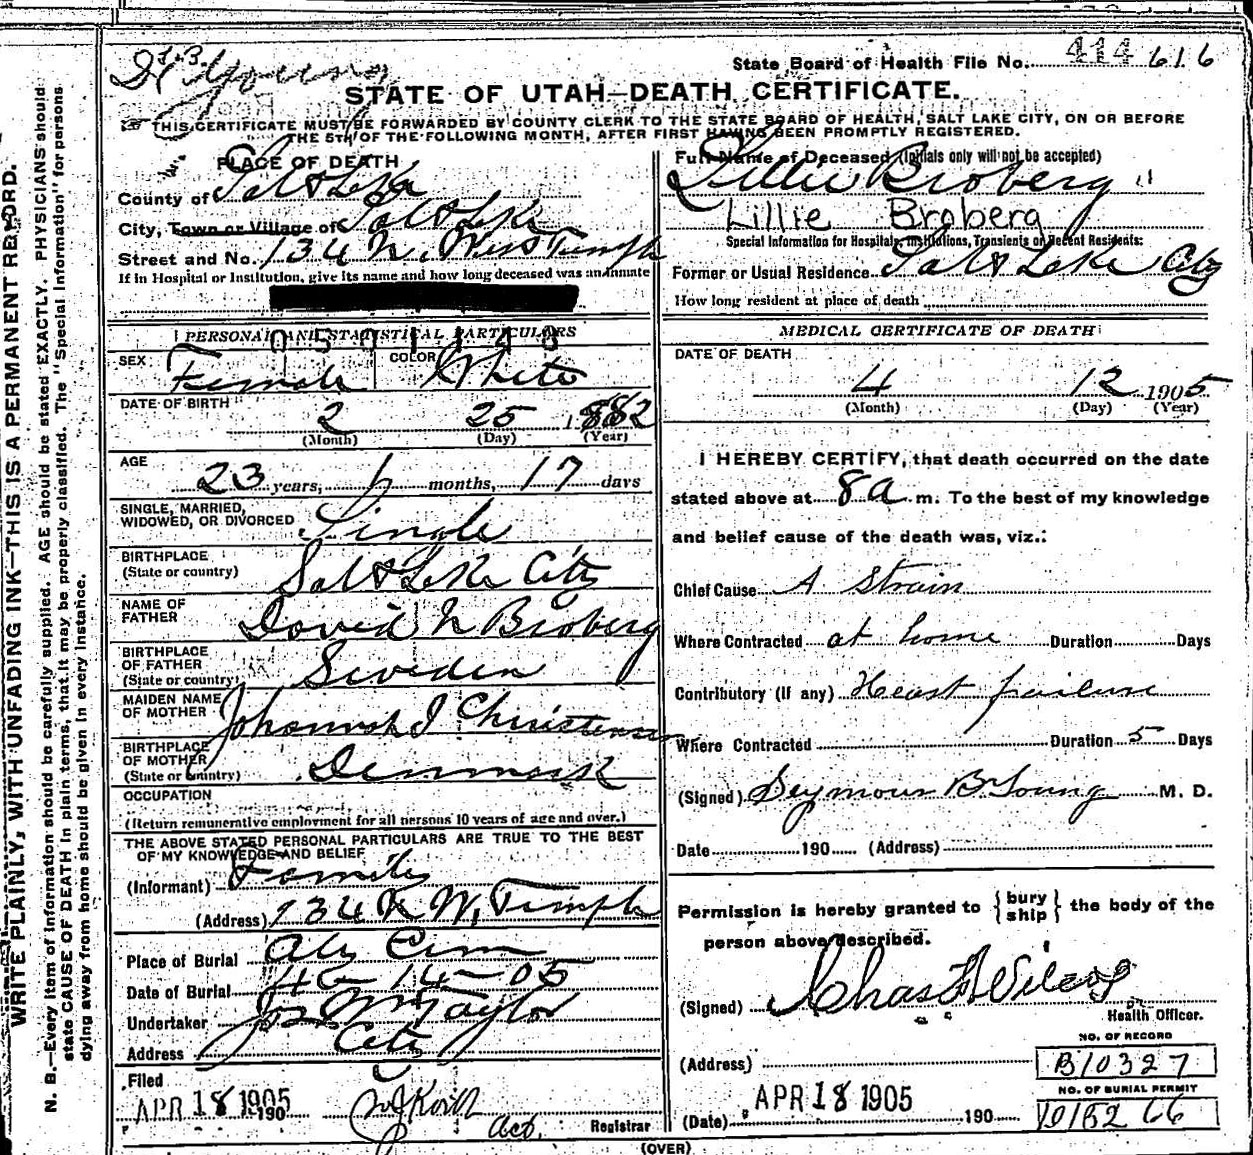 State Board of Health File No. 414 616
Dr. S.B. Young
STATE OF UTAH—DEATH CERTIFICATE.
THIS CERTIFICATE MUST BE FORWARDED BY COUNTY CLERK TO THE STATE BOARD OF HEALTH, SALT LAKE CITY, ON OR BEFORE
THE 5TH OF THE FOLLOWING MONTH, AFTER FIRST HAVING BEEN PROMPTLY REGISTERED.
WRITE PLAINLY, WITH UNFADING INK—THIS IS A PERMANENT RECORD.
N. B.—Every item of information should be carefully supplied. AGE should be stated EXACTLY. PHYSICIANS should
state CAUSE OF DEATH in plain terms, that it may be properly classified. The "Special Information" for persons
dying away from home should be given in every instance.
PLACE OF DEATH
County of Salt Lake
City, Town or Village of Salt Lake
Street and No. 134 N. West Temple
If in Hospital or Institution, give its name and how long deceased was an inmate
PERSONAL AND STATISTICAL PARTICULARS
SEX Female COLOR White
DATE OF BIRTH 2 25 1882
(Month) (Day) (Year)
AGE 23 years, 1 months, 17 days
SINGLE, MARRIED,
WIDOWED, OR DIVORCED Single
BIRTHPLACE
(State or country) Salt Lake City
NAME OF
FATHER David N Broberg
BIRTHPLACE
OF FATHER
(State or country) Sweden
MAIDEN NAME
OF MOTHER Johannah I Christensen
BIRTHPLACE
OF MOTHER
(State or country) Denmark
OCCUPATION
(Return remunerative employment for all persons 10 years of age and over.)
THE ABOVE STATED PERSONAL PARTICULARS ARE TRUE TO THE BEST
OF MY KNOWLEDGE AND BELIEF
(Informant) Family
(Address) 134 N W. Temple
Place of Burial City Cem
Date of Burial 4-14-05
Undertaker Jos Wm Taylor
Address City
Filed
APR 18 1905 190
Act. Registrar
Full Name of Deceased (Initials only will not be accepted)
Lillie Broberg
Lillie Broberg
Special Information for Hospitals, Institutions, Transients or Recent Residents:
Former or Usual Residence Salt Lake City
How long resident at place of death
MEDICAL CERTIFICATE OF DEATH
DATE OF DEATH
4 12 1905
(Month) (Day) (Year)
I HEREBY CERTIFY, that death occurred on the date
stated above at 8 a m. To the best of my knowledge
and belief cause of the death was, viz.:
Chief Cause A Strain
Where Contracted at home Duration Days
Contributory (if any) Heart failure
Where Contracted Duration 5 Days
(Signed) Seymour B Young M. D.
Date 190 (Address)
Permission is hereby granted to {bury
ship} the body of the
person above described.
(Signed) Chas F Wilcox
Health Officer.
NO. OF RECORD
(Address) B10327
NO. OF BURIAL PERMIT
(Date) APR 18 1905 190
(OVER)